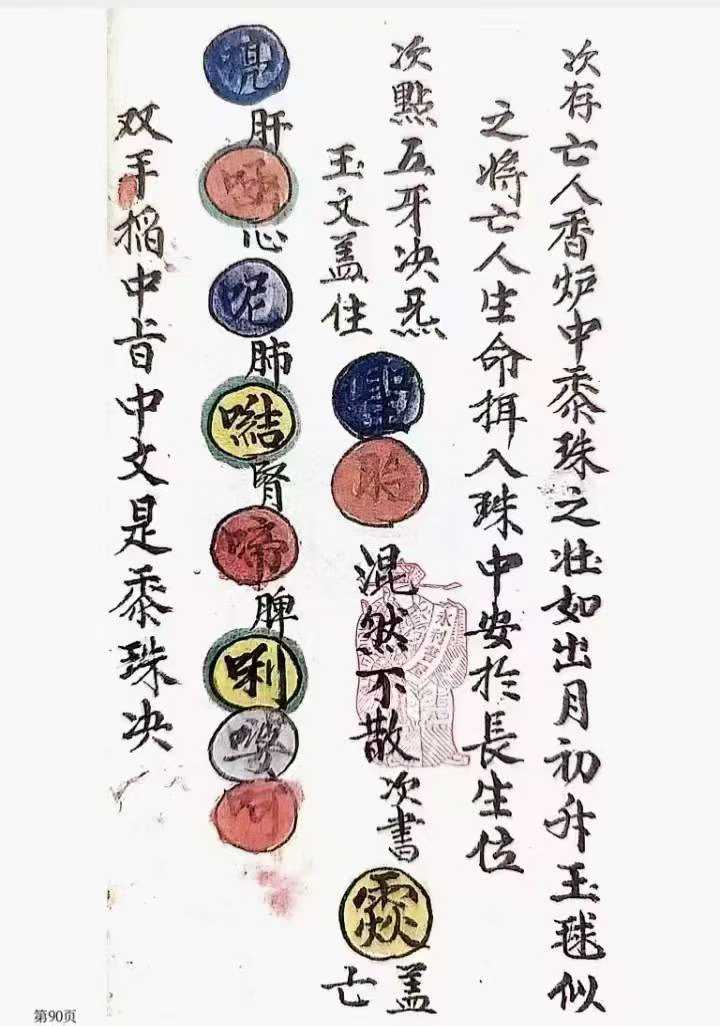 次存亡人香炉中黍珠之壮如出月初升玉毬似
之将亡人生命揖入珠中安於長生位
次點五牙决炁
玉文盖住
聖
混然不散次書
盖
亡
亮
肝
心
呢
肺
嚸
腎
啼
脾
唎
双手搯中旨中文是黍珠决
第90页